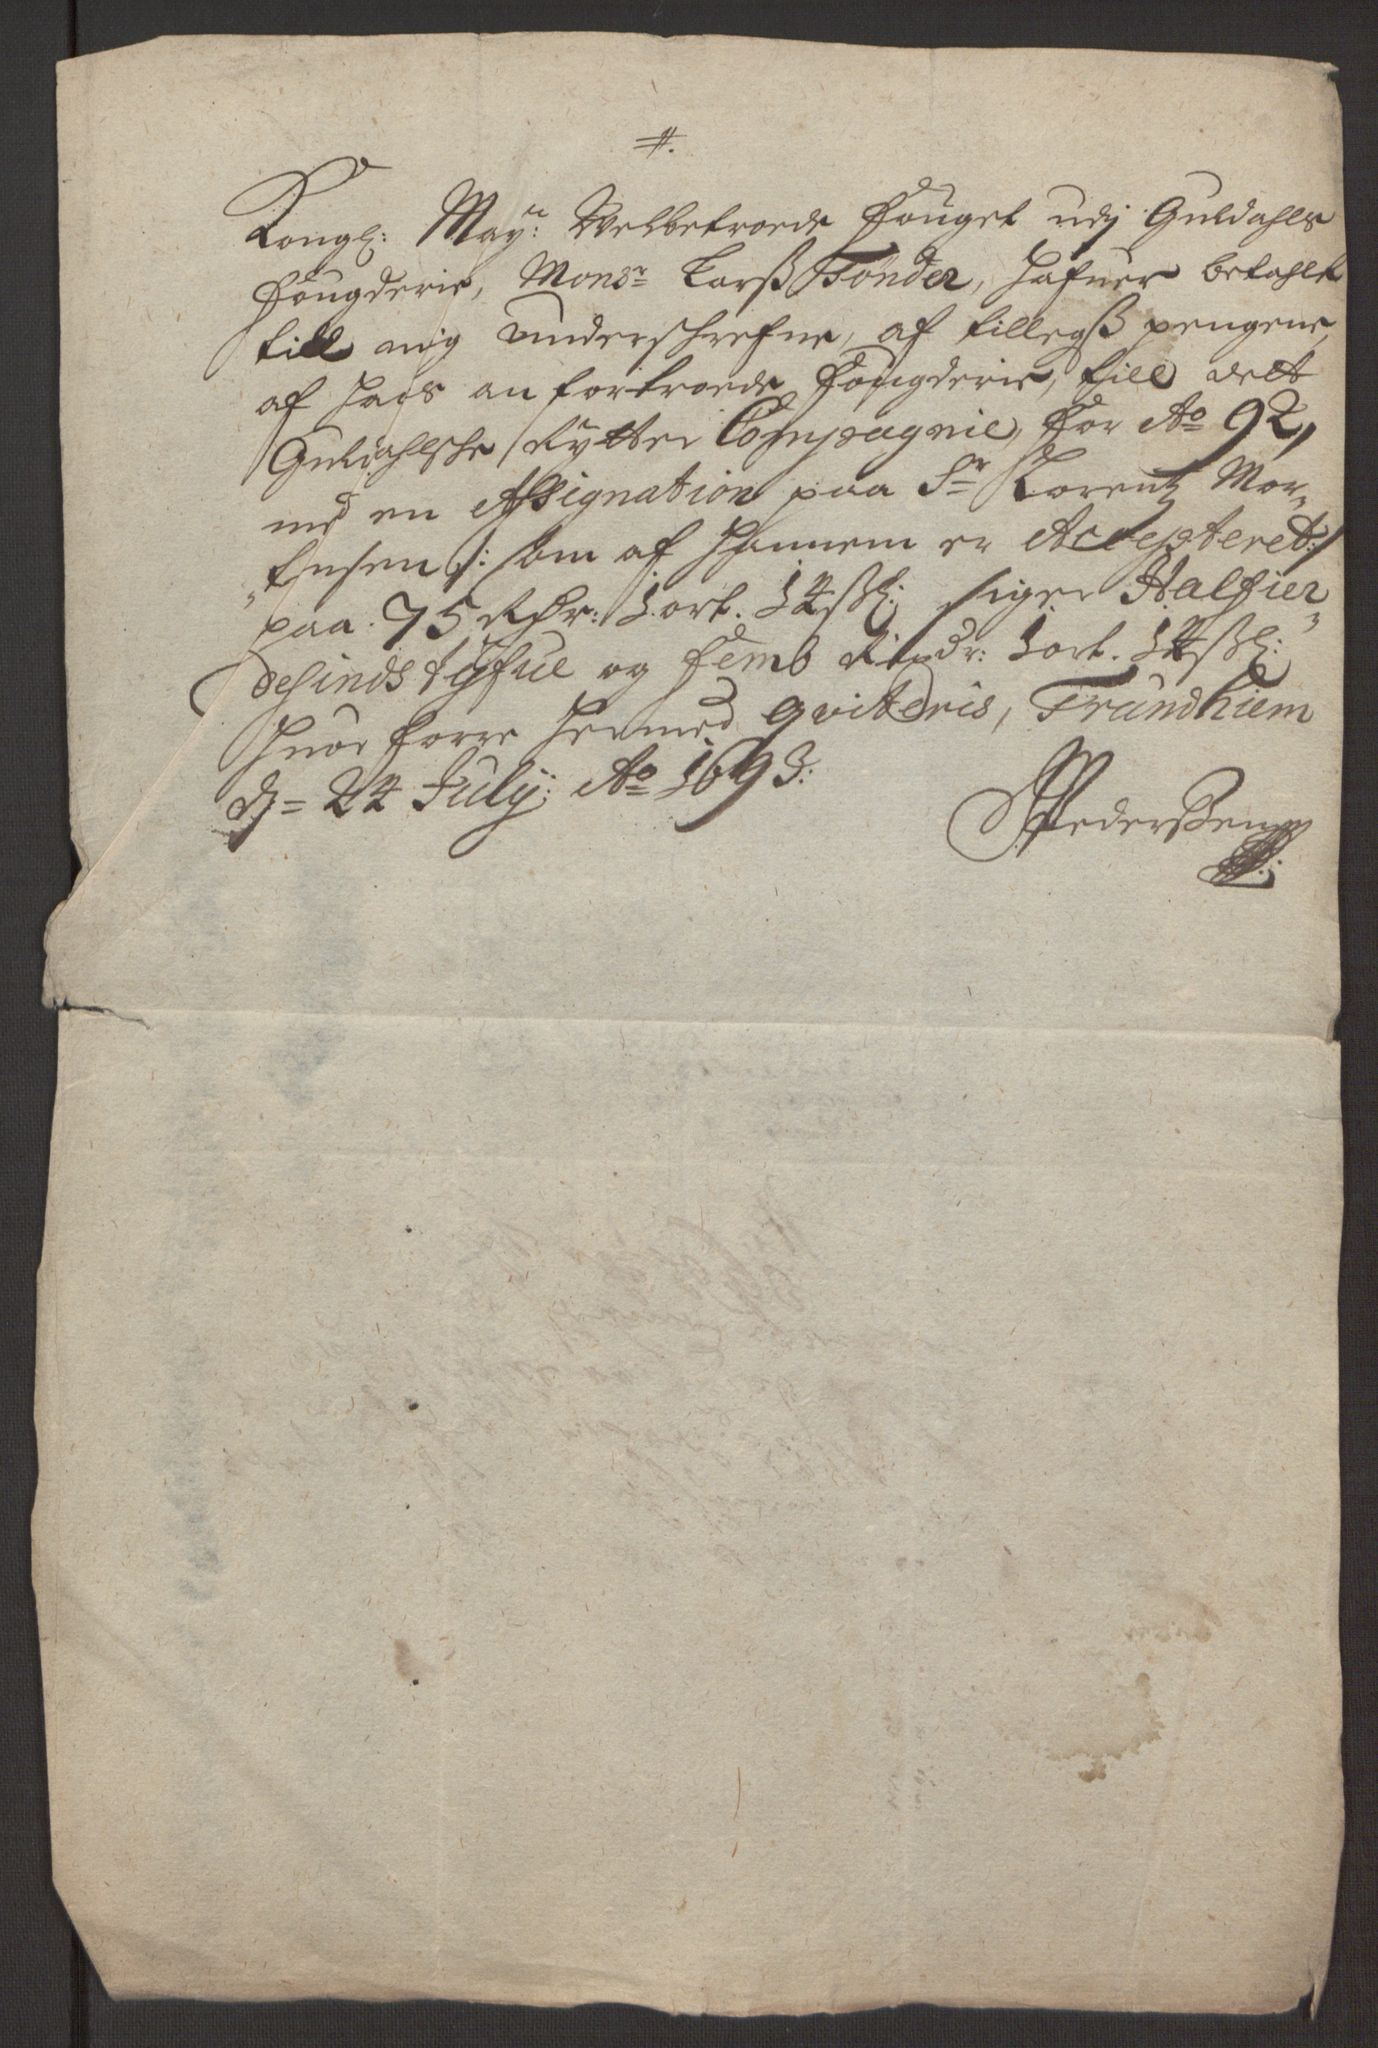 #.
Kongl: May:tt Velbetroede Fouget udj Guldahls
Fougderie, Monsr Larsß Tønder, hafuer betahlt
till mig underschrefne, af tillegß pengene
af hans an fortroede Fougderie, till dett
Guldahlske Rytter Compagnie, for Ao 92,
med en Assignation paa Sr Lorentz Mor-
tensen /: som af hannem er Accepteret:/
paa 75 Rdr: 1 ort. 14 ßl: siger Halfier-
desinds tyfue og femb Rixdr: 1 ort. 14 ßl:
huor forre hermed qviteris, Trundhiem
d= 24 July: Ao 1693:
PPederßen